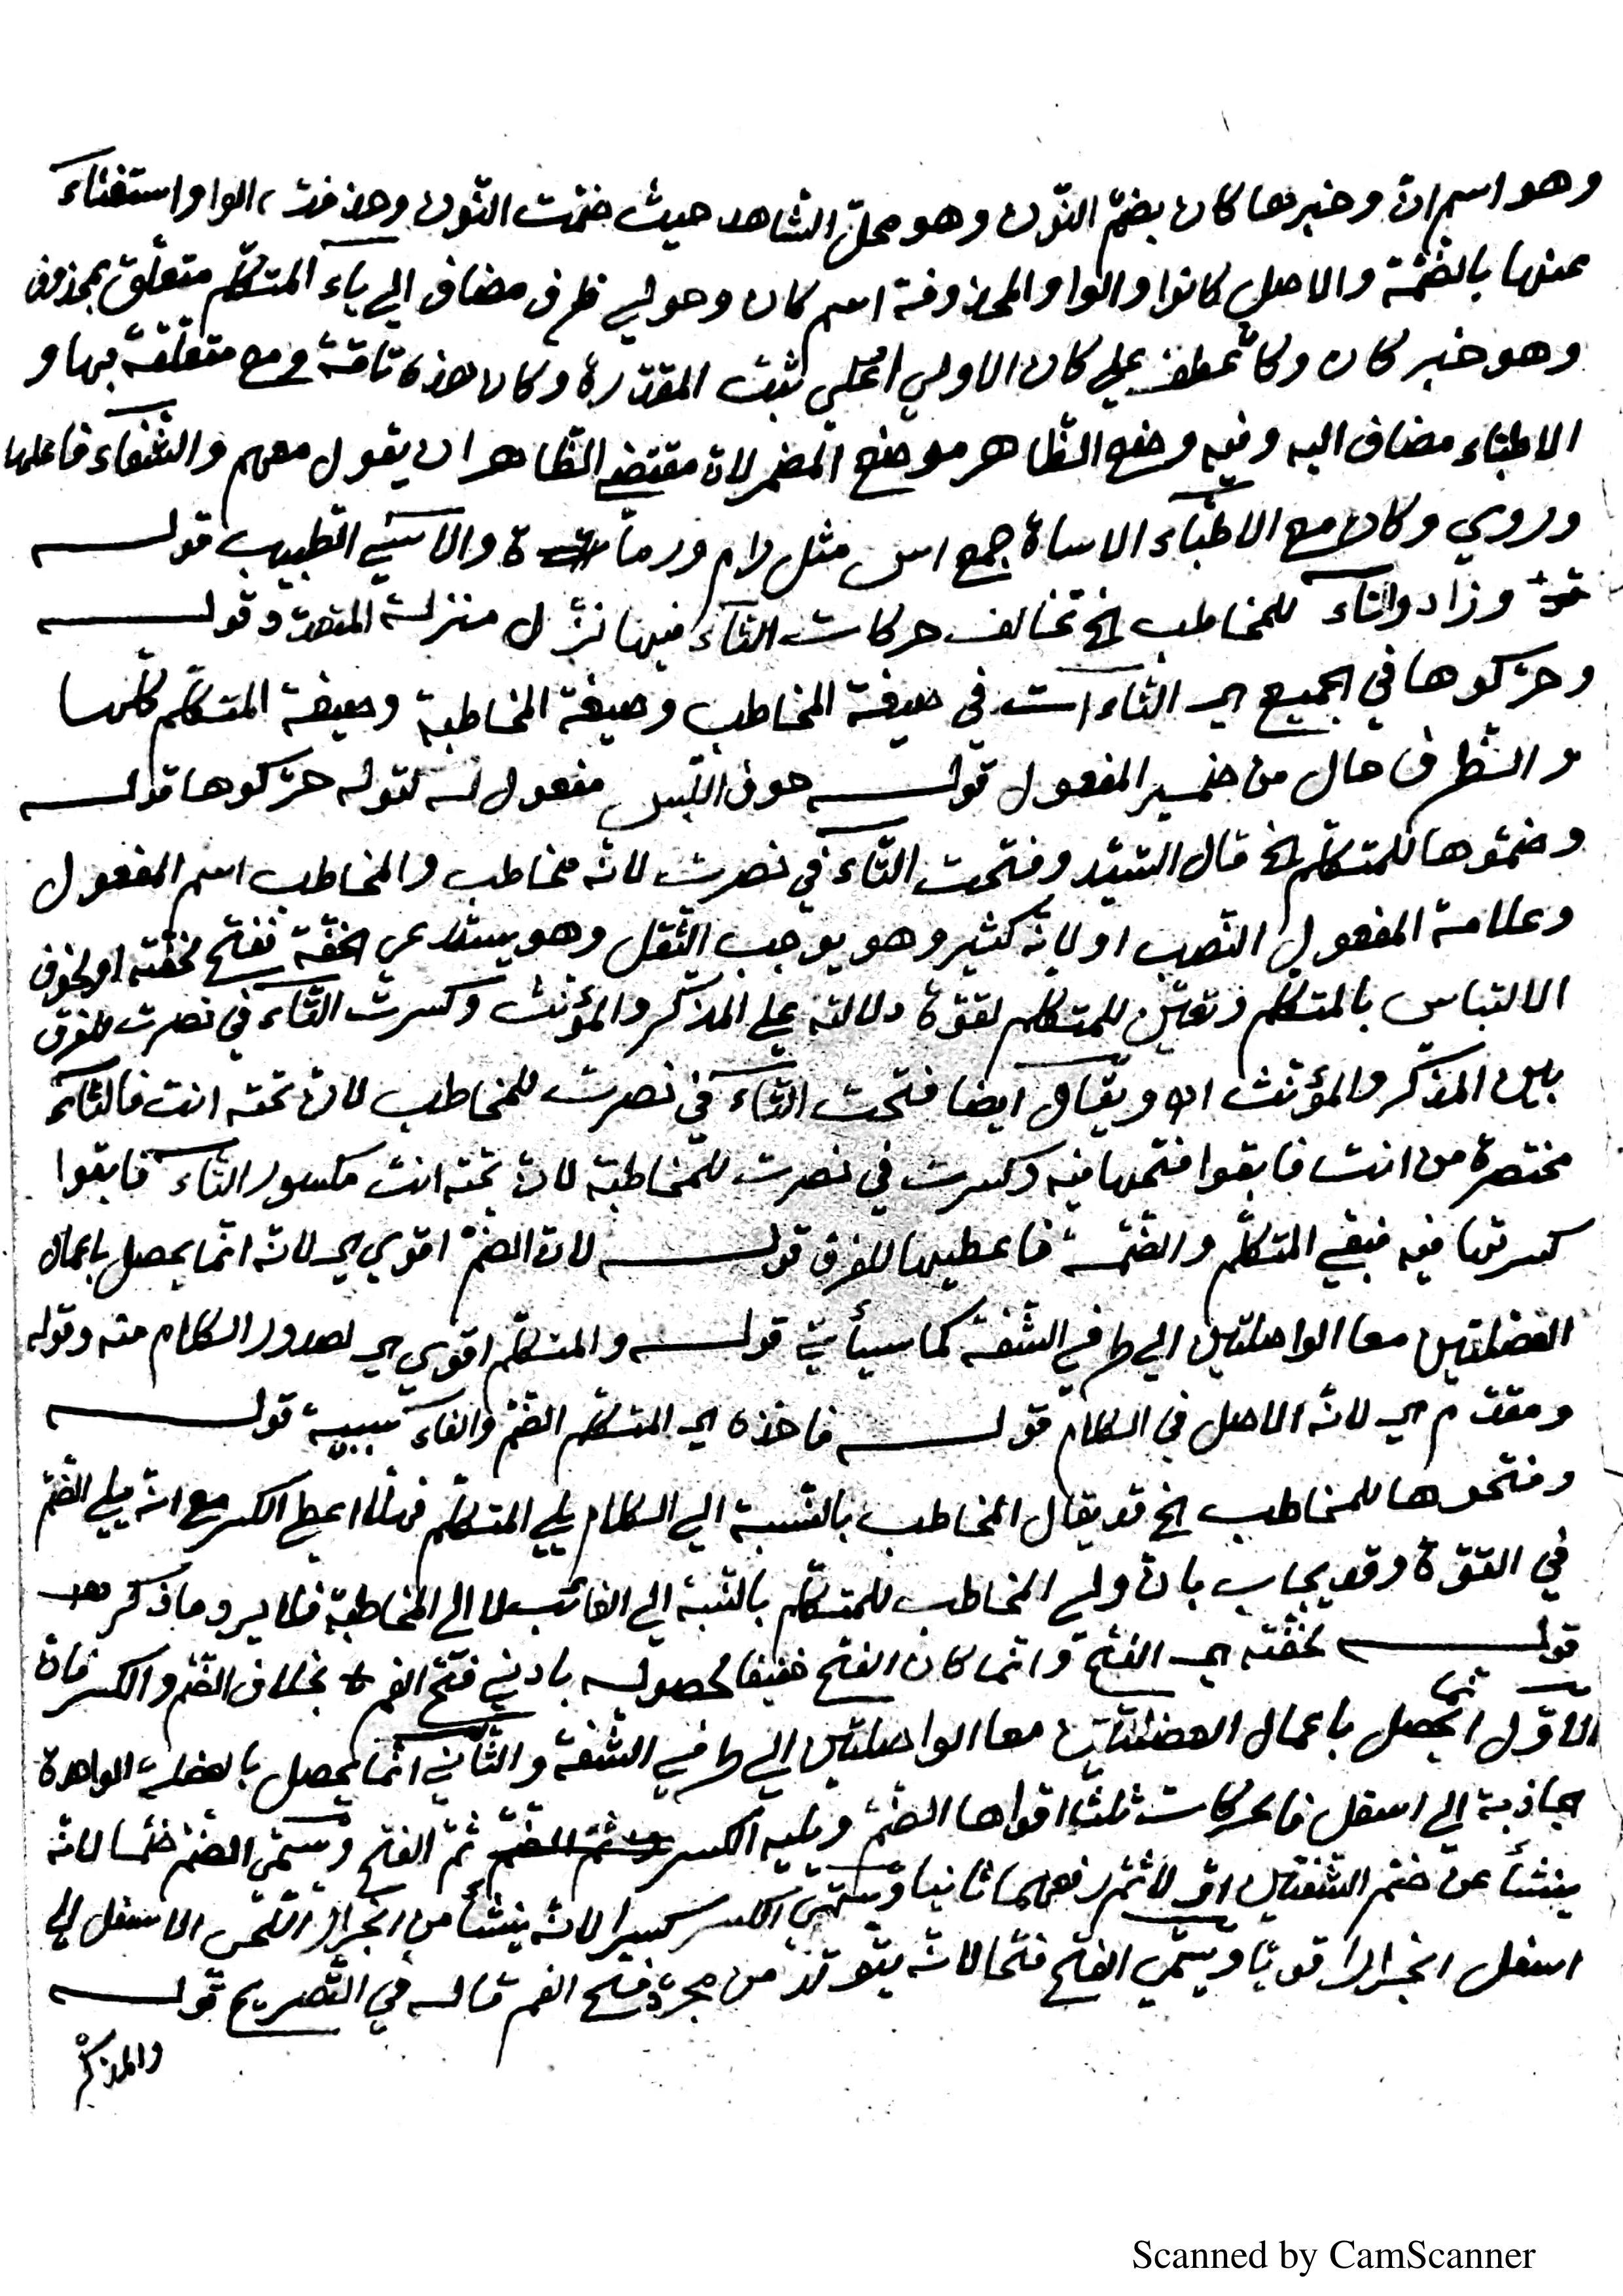 وهو اسم ان وخبرها كان بضمّ النّون وهو محلّ الشاهد حيث ضمّت النّون وحذفت الواو استغناءً
عنها بالضّمّة والاصل كانوا والواو المحذوفة اسم كان وحولي ظرف مضاف الي ياء المتكلّم متعلّق بمحذوف
وهو خبر كان وكان عطف علي كان الاولي اعني ثبت المقدّرة وكان هذه تامّة ومع متعلّقة بها و
الاطبّاء مضاف اليه وفيه وضع الظّاهر موضع المضمر لانّ مقتضي الظّاهر ان يقول معهم والشّفاء فاعلها
وروي وكان مع الاطبّاء الاساة جمع اس مثل رام ورماة والاسي الطّبيب قوله
وزادوا التاء للمخاطب الخ تخالف حركات التّاء فيها نزّل منزلة المتعدد وقوله
وحرّكوها في الجميع اي التّاءات في صيغة المخاطب وصيغة المخاطبة وصيغة المتكلّم كلّها
والظّرف حال من ضمير المفعول قوله خوف اللّبس مفعول له لقوله حرّكوها قوله
وضمّوها للمتكلّم الخ قال السّيّد وفتحت التّاء في نصرت لانّه مخاطب والمخاطب اسم المفعول
وعلامة المفعول النّصب او لانّه كثير وهو يوجب الثّقل وهو يستدعي الخفّة ففتح لخفّته او لخوف
الالتباس بالمتكلّم وتعيّن للمتكلم لقوّة دلالته علي المذكّر والمؤنّث وكسرت التّاء في نصرت للفرق
بين المذكّر والمؤنّث اه ويقال ايضا فتحت التّاء في نصرت للمخاطب لانّ تحته انت فالتّاء
مختصرة من انت فابقوا فتحها فيه وكسرت في نصرت للمخاطبة لانّ تحته انت مكسور التّاء فابقوا
كسرتها فيه فبقي المتكلّم والضّمّة فاعطيها للفرق قوله لانّ الضمّ اقوي اي لانّه انّما يحصل باعمال
العضلتين معا الواصلتين الي طرفي الشّفة كما سيأتي قوله والمتكلّم اقوي اي لصدور الكلام منه وقوله
ومقدّم اي لانّه الاصل في الكلام قوله فاخذه اي المتكلّم الضّمّ والفاء سببيّة قوله
وفتحوها للمخاطب الخ قد يقال المخاطب بالنّسبة الي الكلام يلي المتكلّم فهلّا اعطي الكسر مع انّه يلي الضّمّ
في القوّة وقد يجاب بانّ ولي المخاطب للمتكلّم بالنّسبة الي الغائب لا الي المخاطبة فلا يرد ما ذكر
قوله لخفّته اي الفتح وانّما كان الفتح خفيفا لحصوله بادني فتح الفم بخلاف الضّمّ والكسر فانّ
الاوّل انّما يحصل باعمال العضلتين معا الواصلتين الي طرفي الشّفة والثّاني انّما يحصل بالعضلة الواحدة
الجاذبة الي اسفل فالحركات ثلث اقواها الضّمّ ويليه الكسر ثمّ الفتح ويسمّي الضّمّ ضمّا لانّه
ينشأ عن ضمّ الشّفتين اوّلا ثمّ رفعهما ثانيا ويسمّي الكسر كسرا لانّه ينشأ من انجرار اللّحي الاسفل الي
اسفل انجرارا قويّا ويسمّي الفتح فتحا لانّه يتولّد من مجرّد فتح الفم قاله في التّصريح قوله
والمذكّر
Scanned by CamScanner